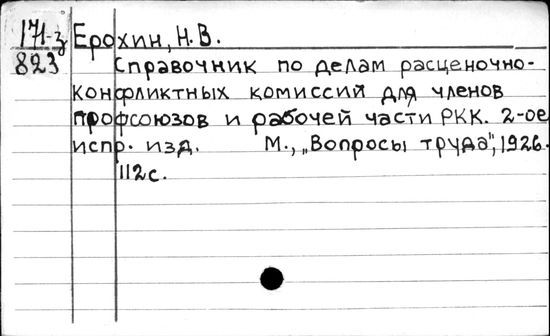 171-з Ерохин, Н.В.
823 Справочник по делам расценочно-
конфликтных комиссий для членов
профсоюзов и рабочей части РКК. 2-ое
испр. изд. М., „Вопросы труда", 1926.
112 с.